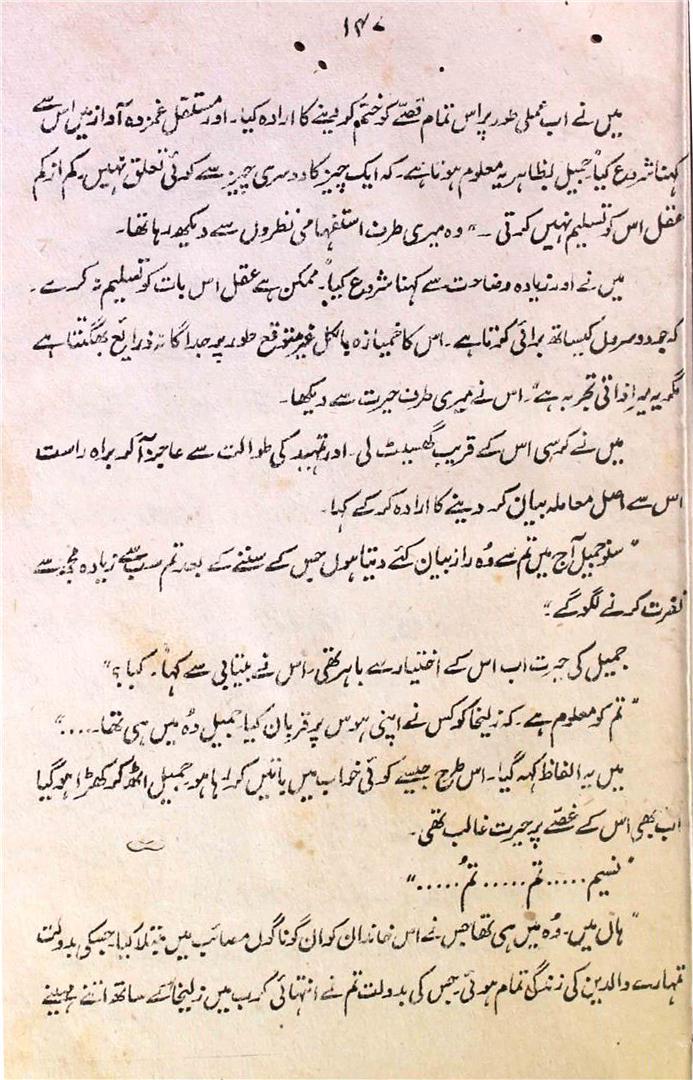 ۱۴۷
میں نے اب عملی طور پر اس تمام قصّے کو ختم کر دینے کا ارادہ کیا۔ اور مستقل غمزدہ آواز میں اس سے
کہنا شروع کیا "جمیل بظاہر یہ معلوم ہوتا ہے۔ کہ ایک چیز کا دوسری چیز سے کوئی تعلق نہیں۔ کم از کم
عقل اس کو تسلیم نہیں کرتی ۔" وہ میری طرف استفہامی نظروں سے دیکھ رہا تھا۔
میں نے اور زیادہ وضاحت سے کہنا شروع کیا "۔ ممکن ہے عقل اس بات کو تسلیم نہ کرے۔
کہ جو دوسروں کیساتھ برائی کرتا ہے۔ اس کا خمیازہ بالکل غیر متوقع طور پر جداگانہ ذرائع بھگتتا ہے
مگر یہ میرا ذاتی تجربہ ہے"۔ اس نے میری طرف حیرت سے دیکھا۔
میں نے کرسی اس کے قریب گھسیٹ لی۔ اور تمہید کی طوالت سے عاجز آ کر براہ راست
اس سے اصل معاملہ بیان کر دینے کا ارادہ کر کے کہا۔
"سنو جمیل آج میں تم سے وُہ راز بیان کئے دیتا ہوں جس کے سننے کے بعد تم سب سے زیادہ مجھ سے
نفرت کرنے لگو گے۔"
جمیل کی حیرت اب اس کے اختیار سے باہر تھی۔ اس نے بیتابی سے کہا۔ کیا؟"
"تم کو معلوم ہے۔ کہ زلیخا کو کس نے اپنی ہوس پر قربان کیا۔ جمیل وُہ میں ہی تھا....."
میں یہ الفاظ کہہ گیا۔ اس طرح جیسے کوئی خواب میں باتیں کر رہا ہو۔ جمیل اٹھ کر کھڑا ہو گیا
اب بھی اس کے غصّے پر حیرت غالب تھی۔
"نسیم ..... تم ..... تُم ....."
"ہاں میں۔ وُہ میں ہی تھا جس نے اس خاندان کو ان گوناگوں مصائب میں مبتلا کیا۔ جسکی بدولت
تمہارے والدین کی زندگی تمام ہوئی۔ جس کی بدولت تم نے انتہائی کرب میں زلیخا کے ساتھ اتنے مہینے